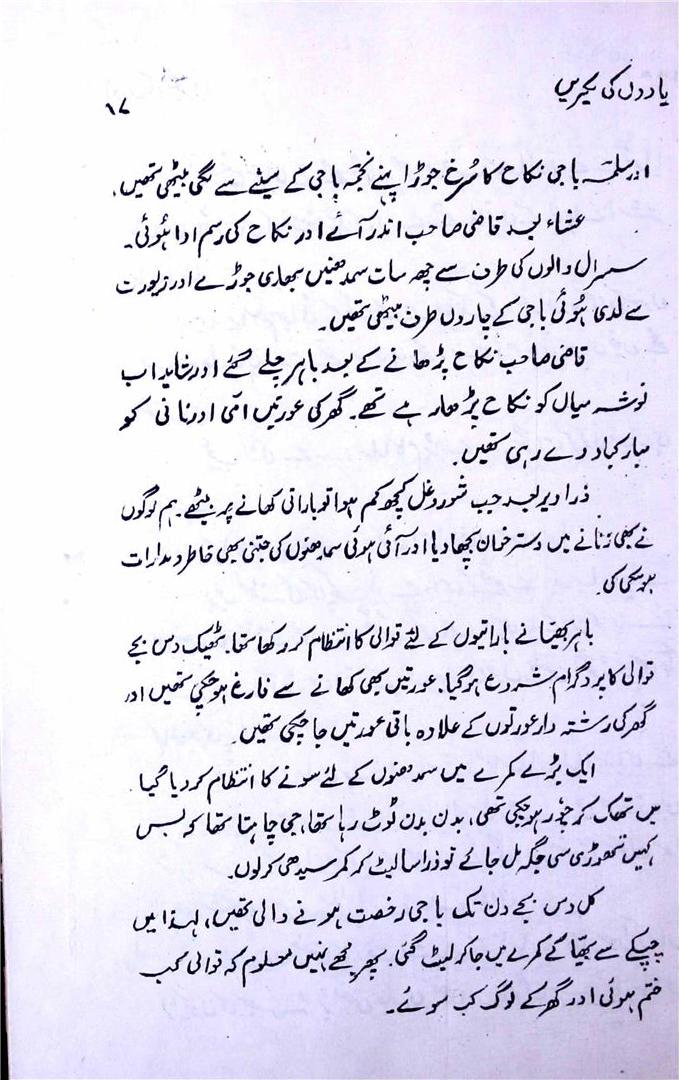 یادوں کی لکیریں
۱۷
اور سلمہ باجی نکاح کا سُرخ جوڑا پہنے نجمہ باجی کے سینے سے لگی بیٹھی تھیں،
عشاء بعد قاضی صاحب اندر آئے اور نکاح کی رسم ادا ہُوئی۔
سسرال والوں کی طرف سے چھ سات سمدھنیں بھاری جوڑے اور زیورت
سے لدی ہُوئی باجی کے چاروں طرف بیٹھی تھیں۔
قاضی صاحب نکاح پڑھانے کے بعد باہر چلے گئے اور شاید اب
نوشہ میاں کو نکاح پڑھا رہے تھے۔ گھر کی عورتیں امّی اور نانی کو
مبارکباد دے رہی تھیں۔
ذرا دیر بعد جب شور و غل کچھ کم ہوا تو باراتی کھانے پر بیٹھے۔ ہم لوگوں
نے بھی زنانے میں دسترخوان بچھا دیا اور آئی ہوئی سمدھنوں کی جتنی بھی خاطر و مدارات
ہو سکی کی۔
باہر بھیّا نے باراتیوں کے لئے قوالی کا انتظام کر رکھا تھا۔ ٹھیک دس بجے
قوالی کا پروگرام شروع ہو گیا۔ عورتیں بھی کھانے سے فارغ ہو چکی تھیں اور
گھر کی رشتہ دار عورتوں کے علاوہ باقی عورتیں جا چکی تھیں۔
ایک بڑے کمرے میں سمدھنوں کے لئے سونے کا انتظام کر دیا گیا
میں تھک کر چُور ہو چکی تھی، بدن بدن ٹوٹ رہا تھا، جی چاہتا تھا کہ بس
کہیں تھوڑی سی جگہ مل جائے تو ذرا سا لیٹ کر کمر سیدھی کر لوں۔
کل دس بجے دن تک باجی رخصت ہونے والی تھیں، لہٰذا میں
چپکے سے بھیّا کے کمرے میں جا کر لیٹ گئی۔ پھر مجھے نہیں معلوم کہ قوالی کب
ختم ہوئی اور گھر کے لوگ کب سوئے۔